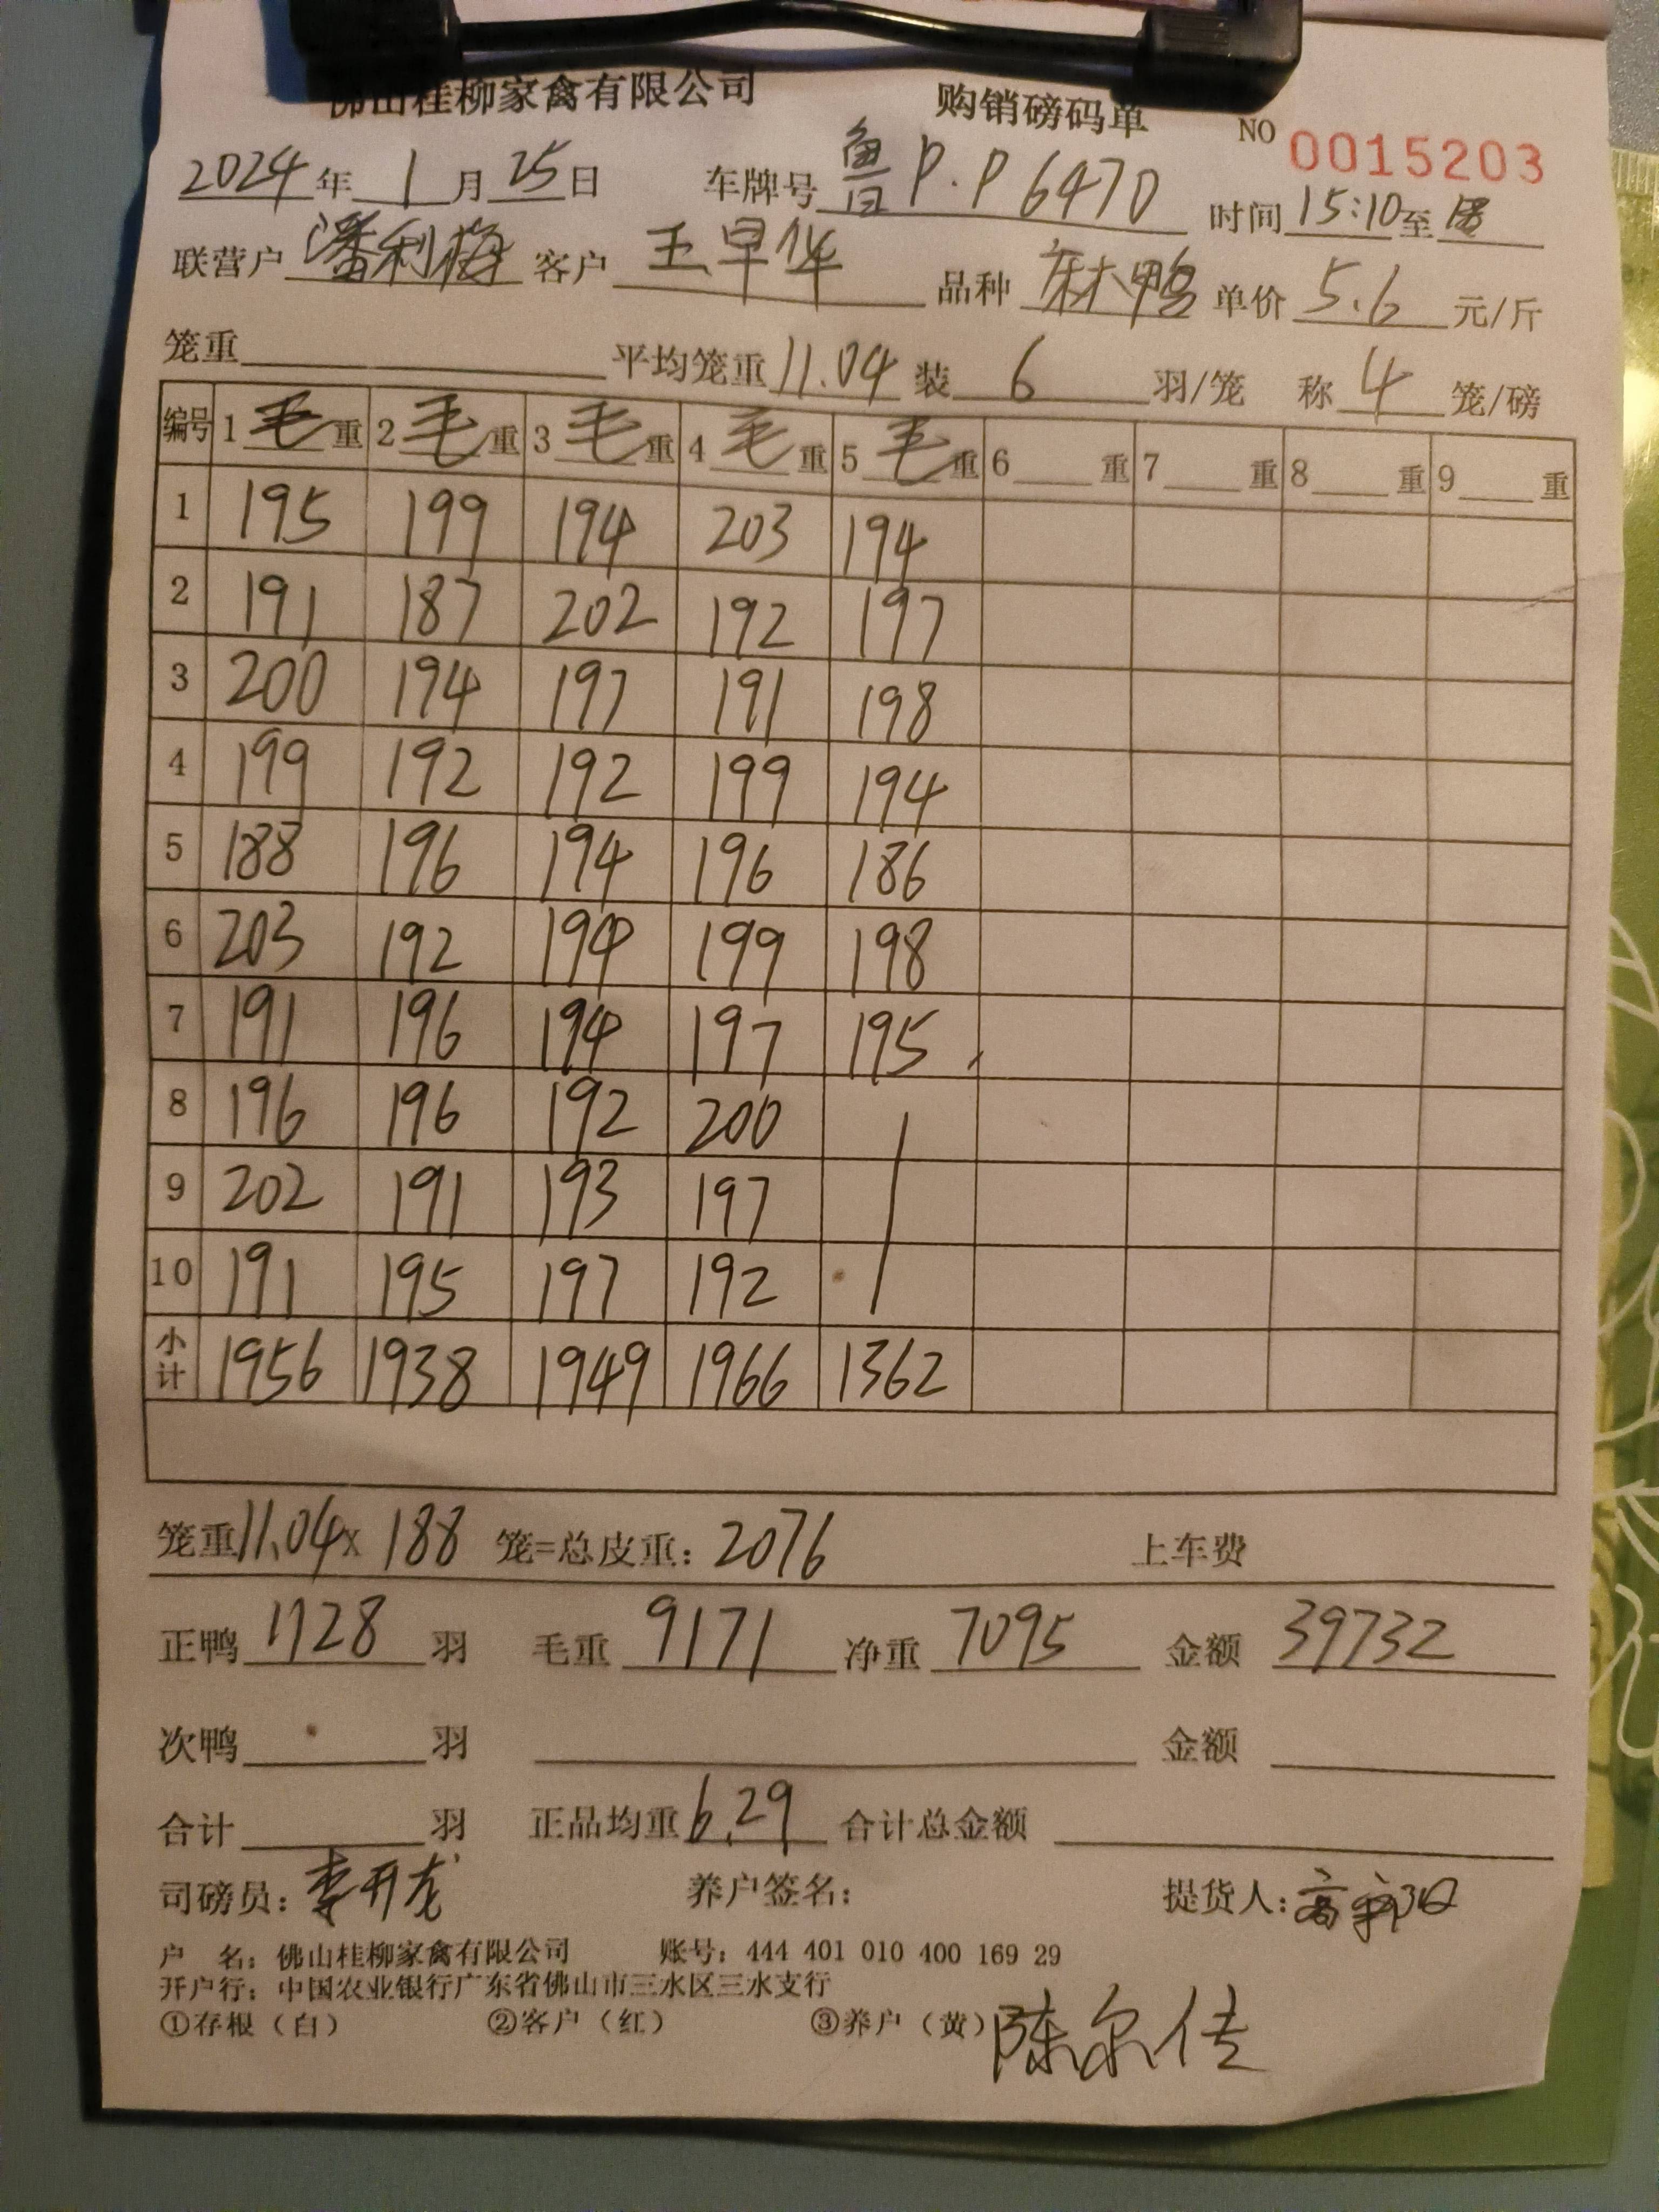 佛山桂柳家禽有限公司 购销磅码单 NO 0015203
2024年1月25日 车牌号 鲁P·P6470 时间 15:10至
联营户 潘利梅 客户 王早华 品种 麻鸭 单价 5.6 元/斤
笼重 平均笼重 11.04 装 6 羽/笼 称 4 笼/磅
编号 1毛重 2毛重 3毛重 4毛重 5毛重 6 重 7 重 8 重 9 重
1 195 199 194 203 194
2 191 187 202 192 197
3 200 194 197 191 198
4 199 192 192 199 194
5 188 196 194 196 186
6 203 192 194 199 198
7 191 196 194 197 195
8 196 196 192 200
9 202 191 193 197
10 191 195 197 192
小计 1956 1938 1949 1966 1362
笼重11.04x 188 笼=总皮重: 2076 上车费
正鸭 1128 羽 毛重 9171 净重 7095 金额 39732
次鸭 羽 金额
合计 羽 正品均重 6.29 合计总金额
司磅员: 李开龙 养户签名: 提货人:
户 名: 佛山桂柳家禽有限公司 账号: 444 401 010 400 169 29
开户行: 中国农业银行广东省佛山市三水区三水支行
①存根（白） ②客户（红） ③养户（黄） 陈尔传